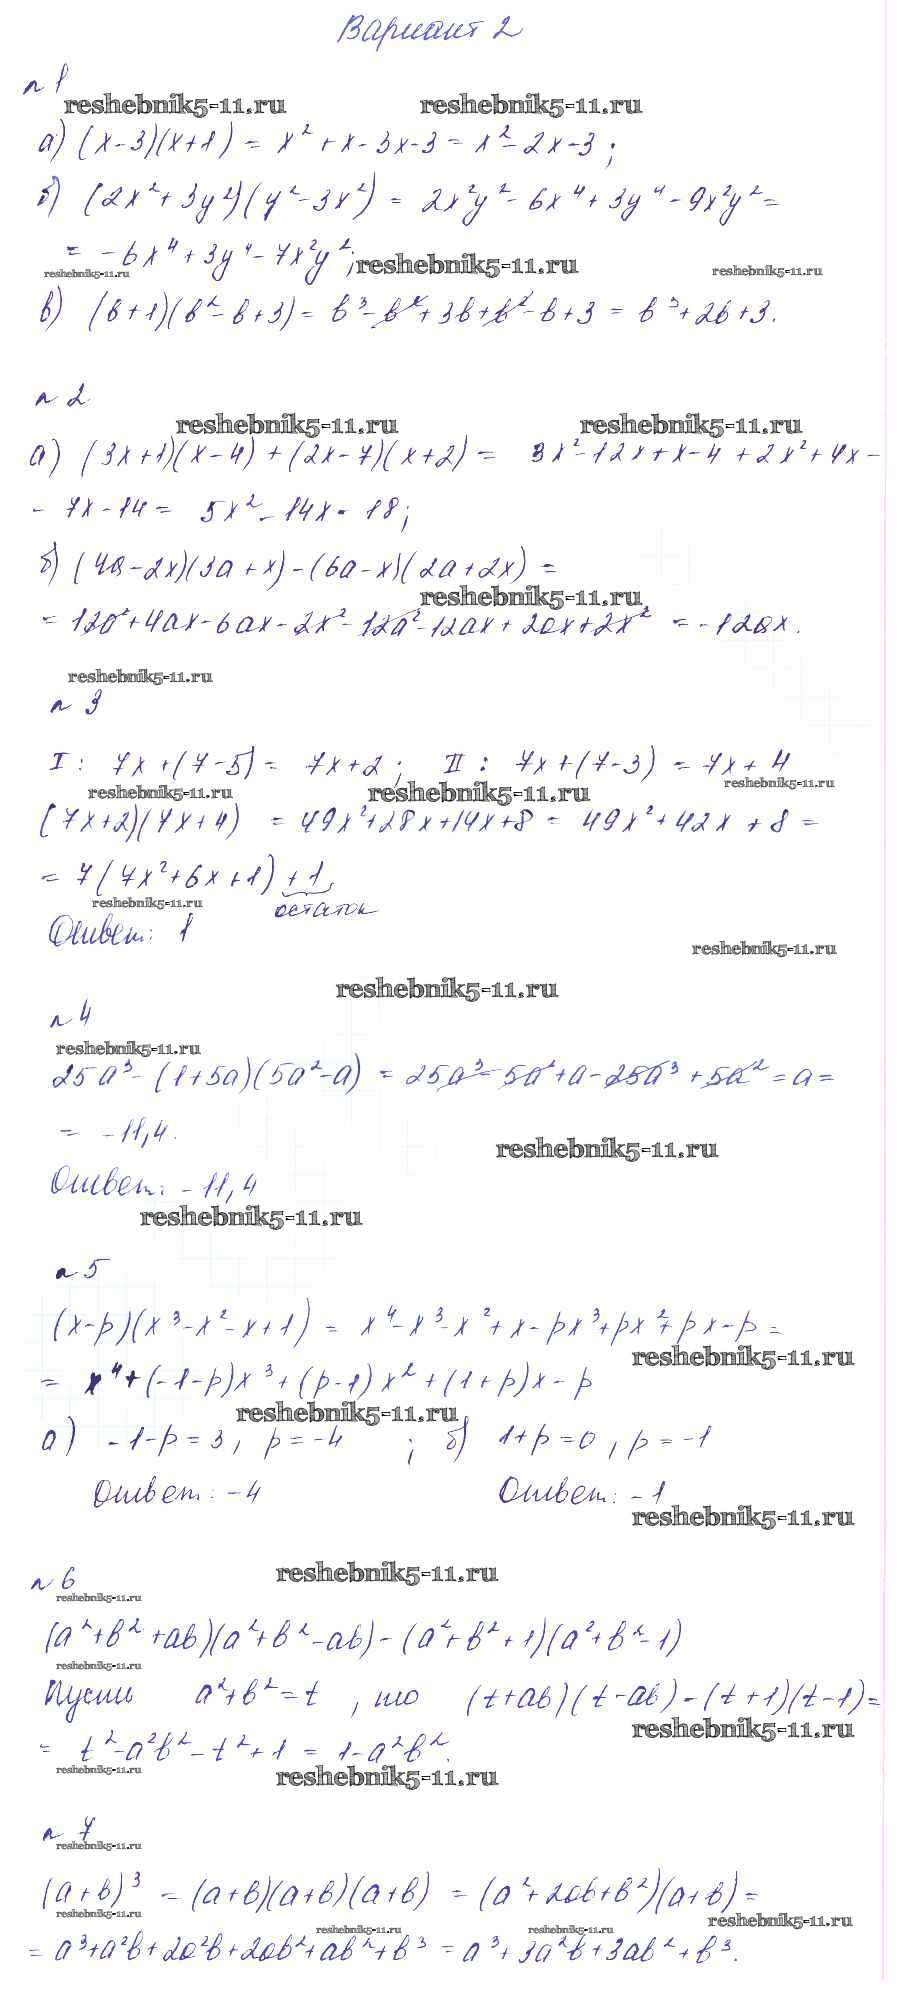 Вариант 2
n 1
reshebnik5-11.ru reshebnik5-11.ru
а) (x-3)(x+1) = x² + x - 3x - 3 = x² - 2x - 3 ;
б) (2x² + 3y²)(y² - 3x²) = 2x²y² - 6x⁴ + 3y⁴ - 9x²y² =
= -6x⁴ + 3y⁴ - 7x²y²;
reshebnik5-11.ru reshebnik5-11.ru reshebnik5-11.ru
в) (в+1)(в² - в + 3) = в³ - в² + 3в + в² - в + 3 = в³ + 2в + 3.
n 2
reshebnik5-11.ru reshebnik5-11.ru
а) (3x+1)(x-4) + (2x-7)(x+2) = 3x² - 12x + x - 4 + 2x² + 4x -
- 7x - 14 = 5x² - 14x - 18;
б) (4a - 2x)(3a + x) - (6a - x)(2a + 2x) =
reshebnik5-11.ru
= 12a² + 4ax - 6ax - 2x² - 12a² - 12ax + 2ax + 2x² = -12ax.
reshebnik5-11.ru
n 3
I : 7x + (7-5) = 7x + 2 ; II : 7x + (7-3) = 7x + 4
reshebnik5-11.ru reshebnik5-11.ru reshebnik5-11.ru
(7x+2)(7x+4) = 49x² + 28x + 14x + 8 = 49x² + 42x + 8 =
= 7(7x² + 6x + 1) + 1,
reshebnik5-11.ru остаток
Ответ: 1
reshebnik5-11.ru
reshebnik5-11.ru
n 4
reshebnik5-11.ru
25a³ - (1+5a)(5a² - a) = 25a³ - 5a² + a - 25a³ + 5a² = a =
= -11,4.
reshebnik5-11.ru
Ответ: -11,4
reshebnik5-11.ru
n 5
(x-p)(x³ - x² - x + 1) = x⁴ - x³ - x² + x - px³ + px² + px - p =
reshebnik5-11.ru
= x⁴ + (-1-p)x³ + (p-1)x² + (1+p)x - p
reshebnik5-11.ru
а) -1-p = 3, p = -4 ; б) 1+p = 0, p = -1
Ответ: -4 Ответ: -1
reshebnik5-11.ru
reshebnik5-11.ru
n 6
reshebnik5-11.ru
(a² + в² + aв)(a² + в² - aв) - (a² + в² + 1)(a² + в² - 1)
reshebnik5-11.ru
Пусть a² + в² = t , то (t + aв)(t - aв) - (t+1)(t-1) =
reshebnik5-11.ru
= t² - a²в² - t² + 1 = 1 - a²в².
reshebnik5-11.ru reshebnik5-11.ru
n 7
reshebnik5-11.ru
(a+в)³ = (a+в)(a+в)(a+в) = (a² + 2aв + в²)(a+в) =
reshebnik5-11.ru reshebnik5-11.ru reshebnik5-11.ru reshebnik5-11.ru
= a³ + a²в + 2a²в + 2aв² + aв² + в³ = a³ + 3a²в + 3aв² + в³.